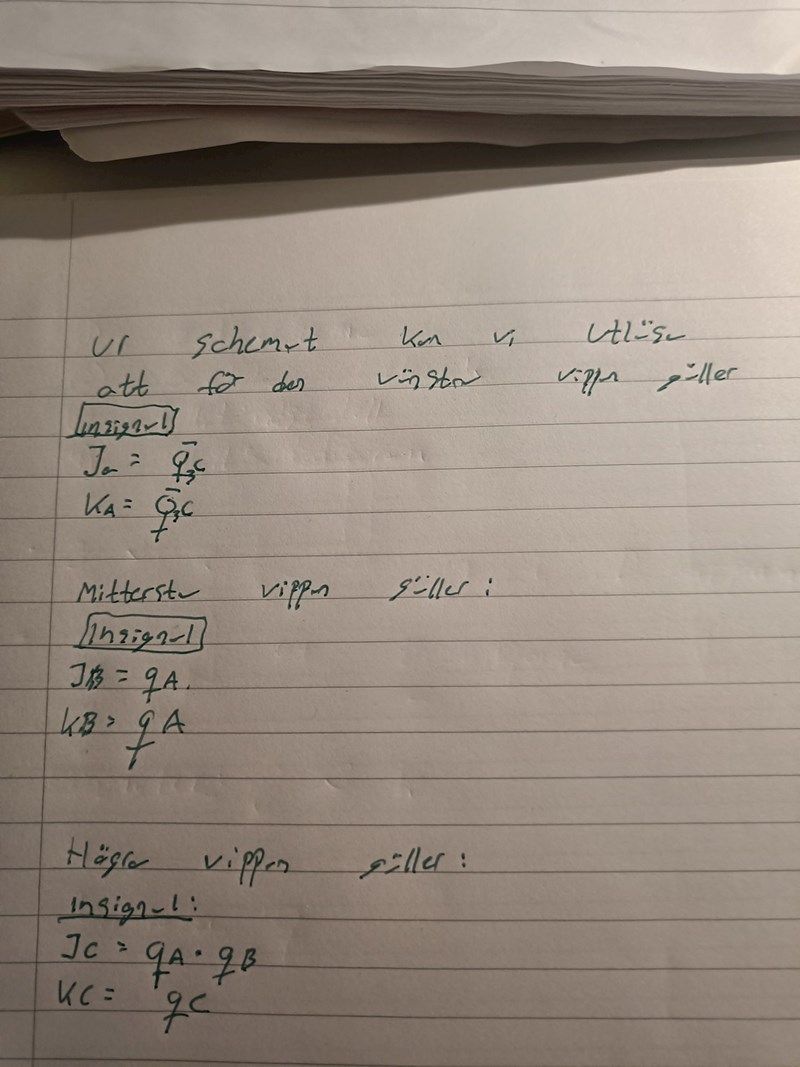 Ur schemat kan vi utläsa
att för den vänstra vippan gäller
Insignal
Ja = q̄c
KA = q̄c
Mittersta vippan gäller:
Insignal
JB = qA.
KB = qA
Högra vippan gäller:
insignal:
JC = qA · qB
KC = qC